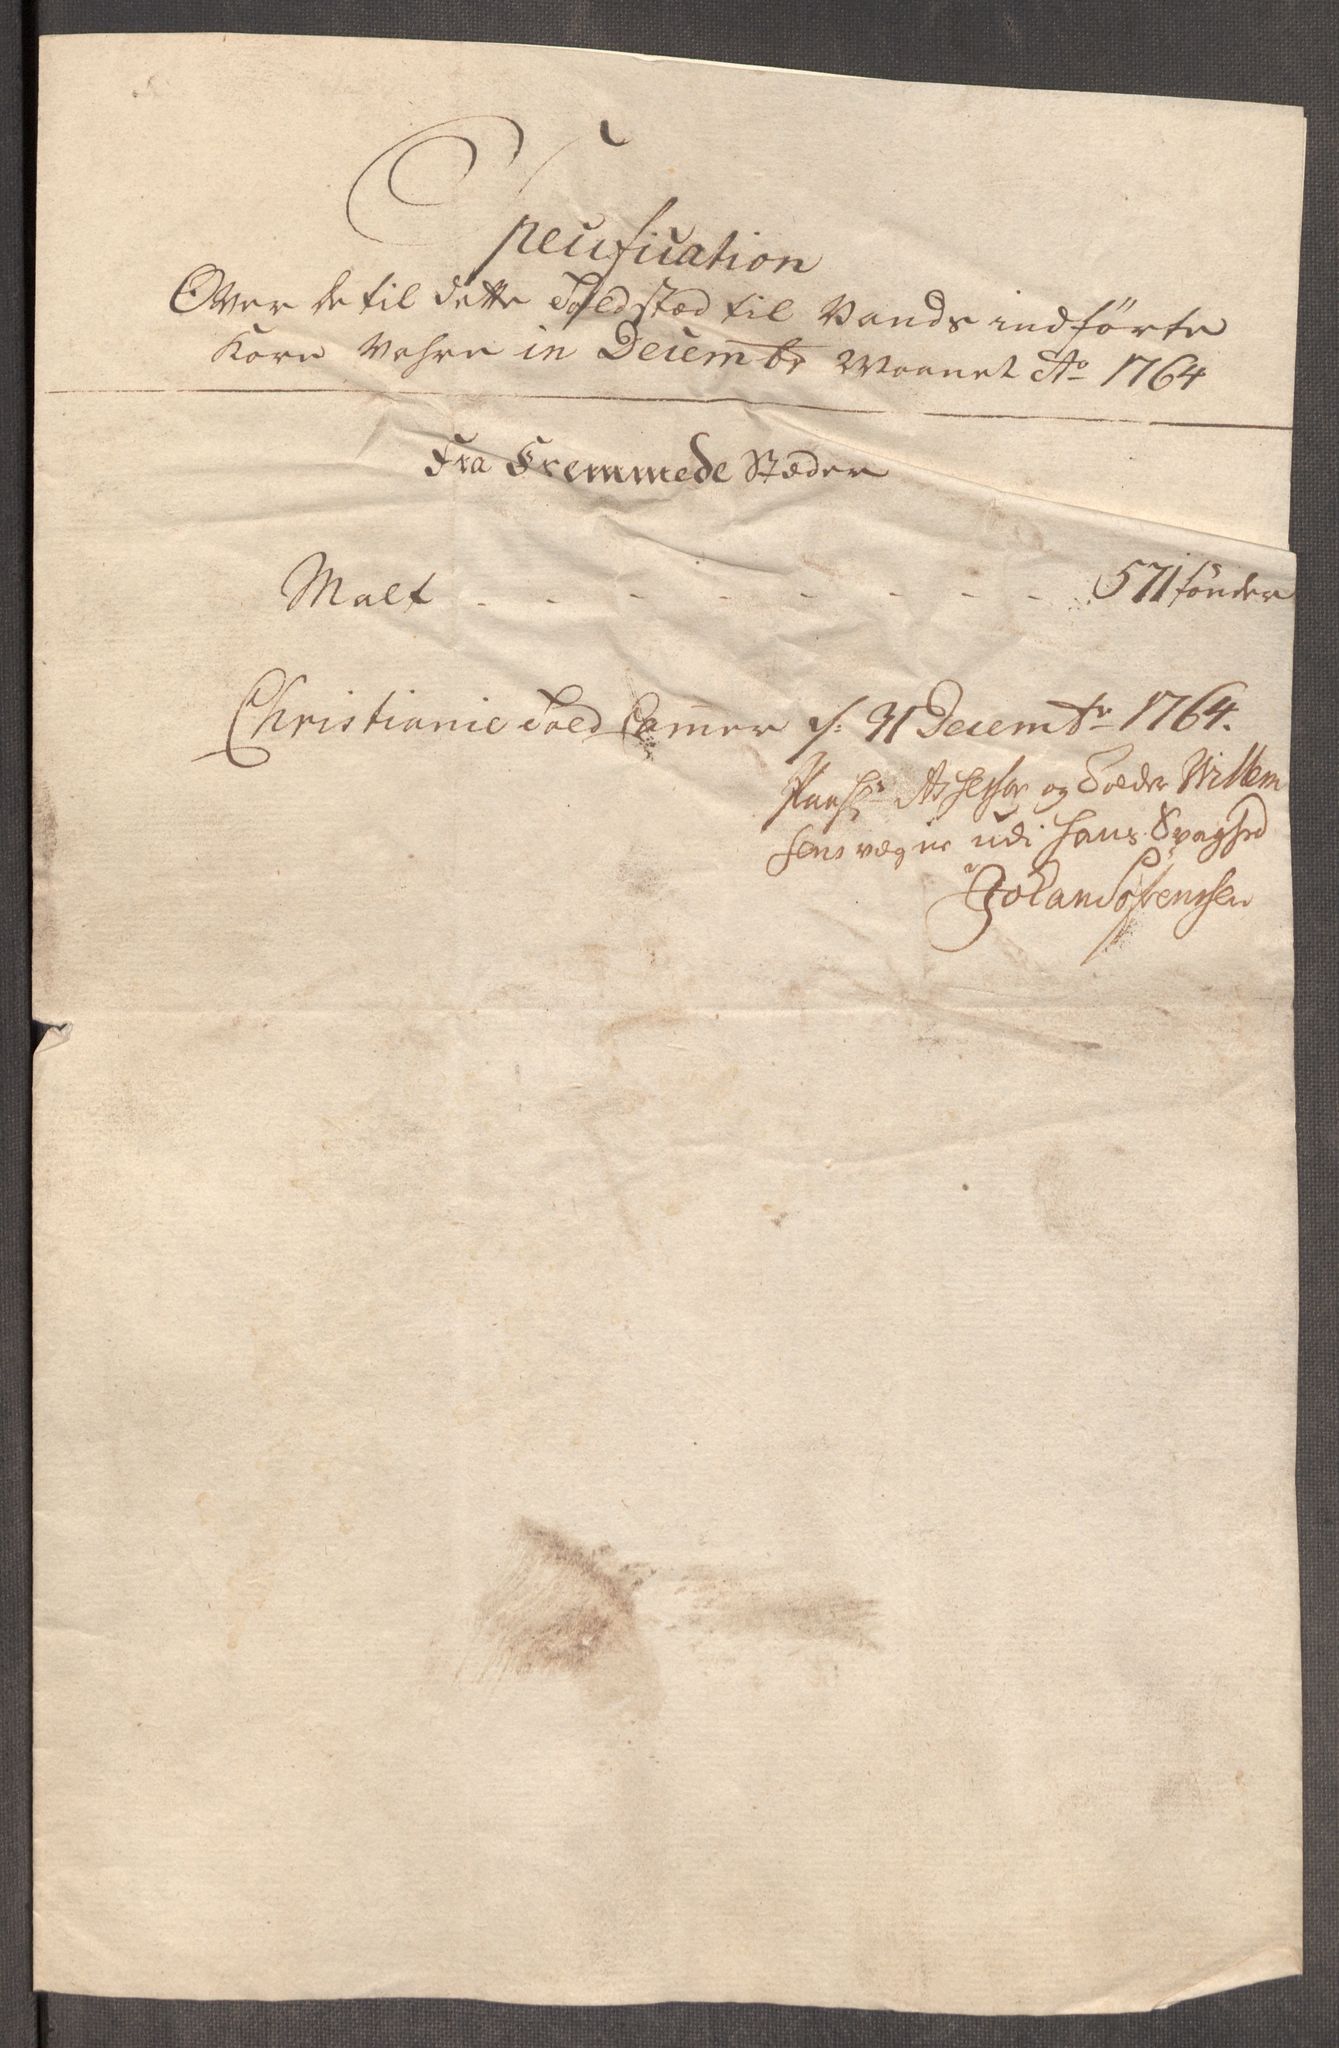 Specification
Over de til dette Toldsted til Vands indförte
Korn Vahre in Decembr Maanet Ao 1764
Fra Fremmede Stæder
Malt - - - - - - - - 571 tönder
Christianie Told Camer d: 31 Decembr 1764.
Paa Hr Assessor og Tolder Willem
sens vegne udi hans Svaghed
Sörensen